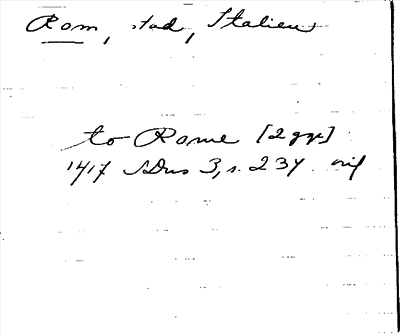 Rom, stad, Italien
to Rome [2 ggr]
1417 SDns 3, s. 234 orig